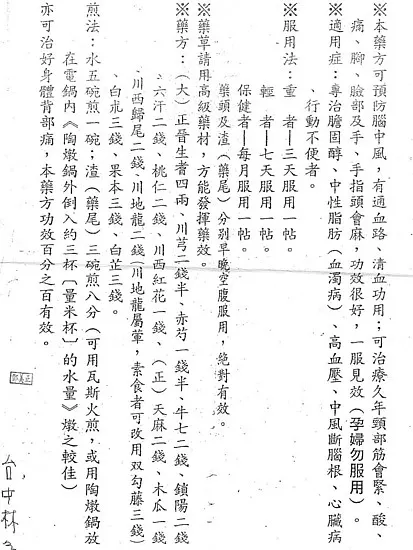 ※本藥方可預防腦中風，有通血路、清血功用；可治療久年頸部筋會緊、酸、
痛、腳、臉部及手、手指頭會麻，功效很好，一服見效（孕婦勿服用）。
※適用症：專治膽固醇、中性脂肪（血濁病）、高血壓、中風斷腦根、心臟病
、行動不便者。
※服用法：重　者—三天服用一帖。
輕　者—七天服用一帖。
保健者—每月服用一帖。
藥頭及渣（藥尾）分別早晚空腹服用，絕對有效。
※藥草請用高級藥材，方能發揮藥效。
※藥方：（大）正晉生耆四兩、川芎二錢半、赤芍一錢半、牛七二錢、鎖陽二錢
、六汗二錢、桃仁二錢、川西紅花一錢、（正）天麻二錢、木瓜一錢
、川西歸尾二錢、川地龍二錢（川地龍屬葷，素食者可改用双勾藤三錢）
、白朮三錢、果本三錢、白芷三錢。
煎法：水五碗煎一碗；渣（藥尾）三碗煎八分（可用瓦斯火煎，或用陶墩鍋放
在電鍋內《陶墩鍋外倒入約三杯〔量米杯〕的水量》墩之較佳）
亦可治好身體背部痛，本藥方功效百分之百有效。
台中林